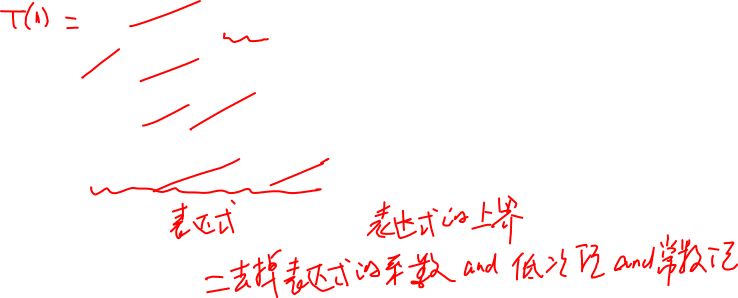 T(n) =
表达式 表达式的上界
=去掉表达式的系数 and 低次项 and 常数项